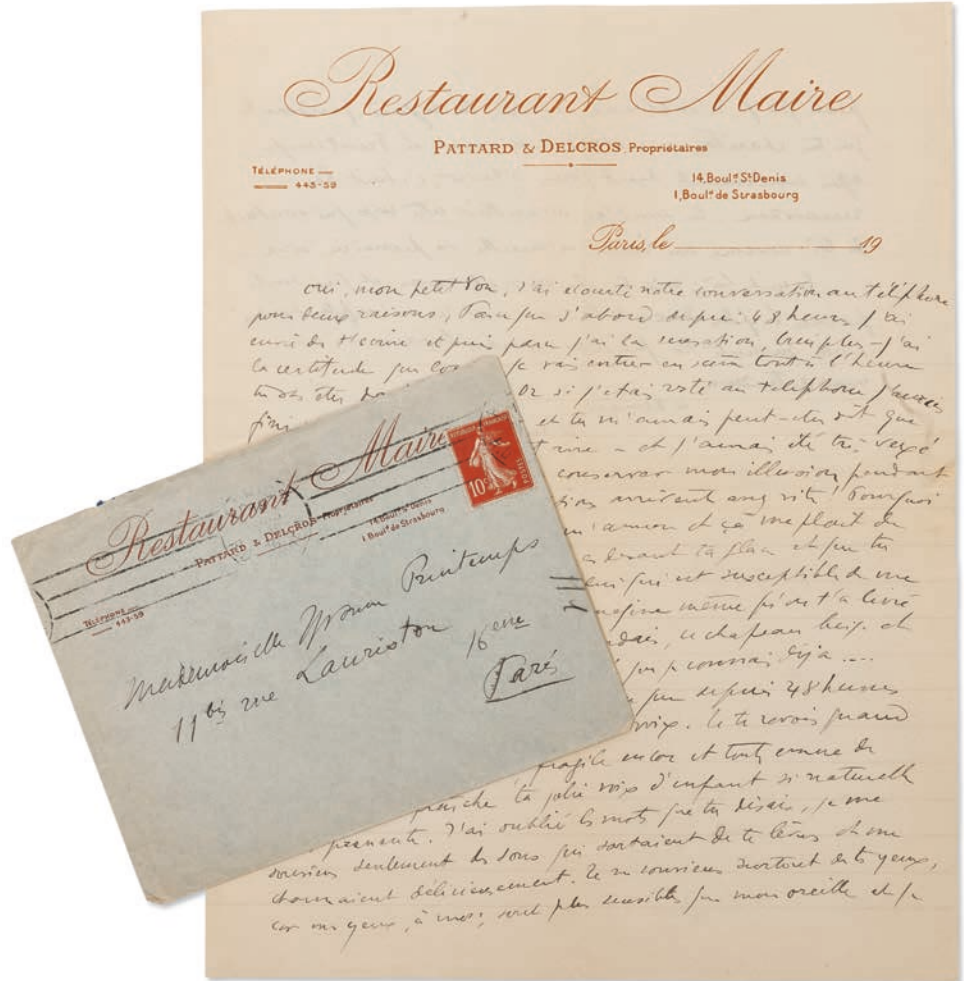 Restaurant Maire
PATTARD & DELCROS, Propriétaires
TÉLÉPHONE
443-59
14, Boulᵈ Sᵗ Denis
1, Boulᵈ de Strasbourg
Paris, le 19
oui, mon petit Von, j'ai écourté notre conversation au téléphone
pour deux raisons, d'abord depuis 48 heures j'ai
envie de t'écrire et puis parce j'ai la sensation, bien plus - j'ai
la certitude que je vais entrer en scène tout à l'heure
tu dois être Or si j'étais resté au téléphone j'aurais
fini et tu m'aurais peut-être dit que
et j'aurais été très vexé
conserver mon illusion pendant
arrivent assez vite ! Pourquoi
et ça me plaît de
devant ta glace et que tu
qui est susceptible de
même qu'on t'a livré
ce chapeau beige et
que je connais déjà ....
que depuis 48 heures
voix. Je te revois quand
fragile encore et toute émue de
ta jolie voix d'enfant si naturelle
J'ai oublié les mots que tu disais, je me
souviens seulement des sons qui sortaient de tes lèvres et me
délicieusement. Je me souviens surtout de tes yeux,
car mes yeux, à moi, sont plus sensibles que mon oreille et je
Restaurant Maire
PATTARD & DELCROS, Propriétaires
14, Boulᵈ Sᵗ Denis
1, Boulᵈ de Strasbourg
TÉLÉPHONE
443-59
REPUBLIQUE FRANÇAISE
POSTES
10ᶜ
Mademoiselle Yvonne Printemps
11 bis rue Lauriston
16 eme
Paris